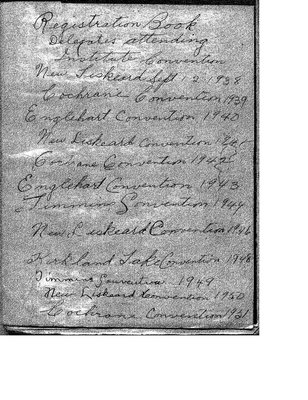 Registration Book
Delegates attending
Institute Convention
New Liskeard Sept 1 2 1938
Cochrane Convention 1939
Englehart Convention 1940
New Liskeard Convention
Cochrane Convention 1942
Englehart Convention 1943
Timmins Convention 1944
New Liskeard Convention 1946
Kirkland Lake Convention 1948
Timmins Convention 1949
New Liskeard Convention 1950
Cochrane Convention 1951